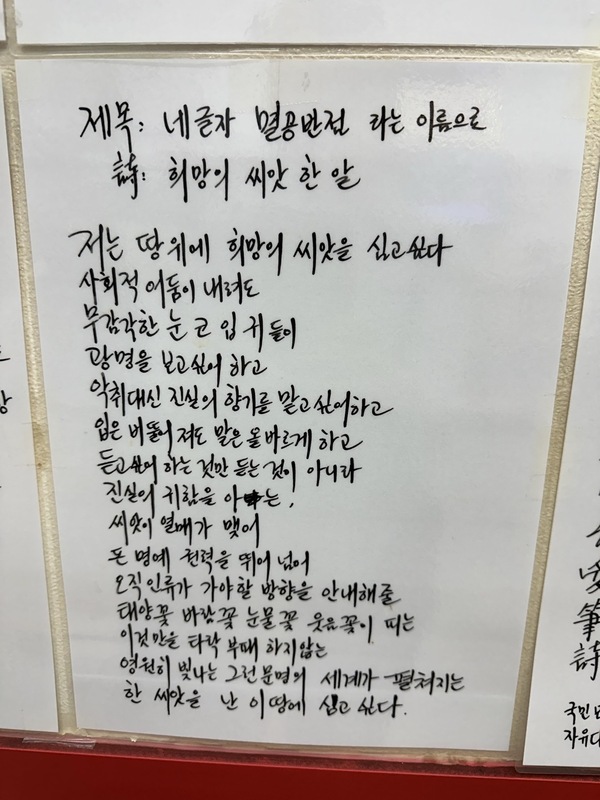 제목: 네글자 멸공반전 라는 이름으로
詩: 희망의 씨앗 한 알
저는 땅위에 희망의 씨앗을 심고싶다
사회적 어둠이 내려도
무감각한 눈 코 입 귀들이
광명을 보고싶어 하고
악취대신 진실의 향기를 맡고싶어하고
입은 비뚤어져도 말은 올바르게 하고
듣고싶어 하는 것만 듣는 것이 아니라
진실의 귀함을 아는,
씨앗이 열매가 맺어
돈 명예 권력을 뛰어 넘어
오직인류가 가야할 방향을 안내해줄
태양꽃 바람꽃 눈물꽃 웃음꽃이 피는
이것만을 타락 부패 하지않는
영원히 빛나는 그런문명의 세계가 펼쳐지는
한 씨앗을 난 이땅에 심고 싶다.
筆
詩
국민
자유대